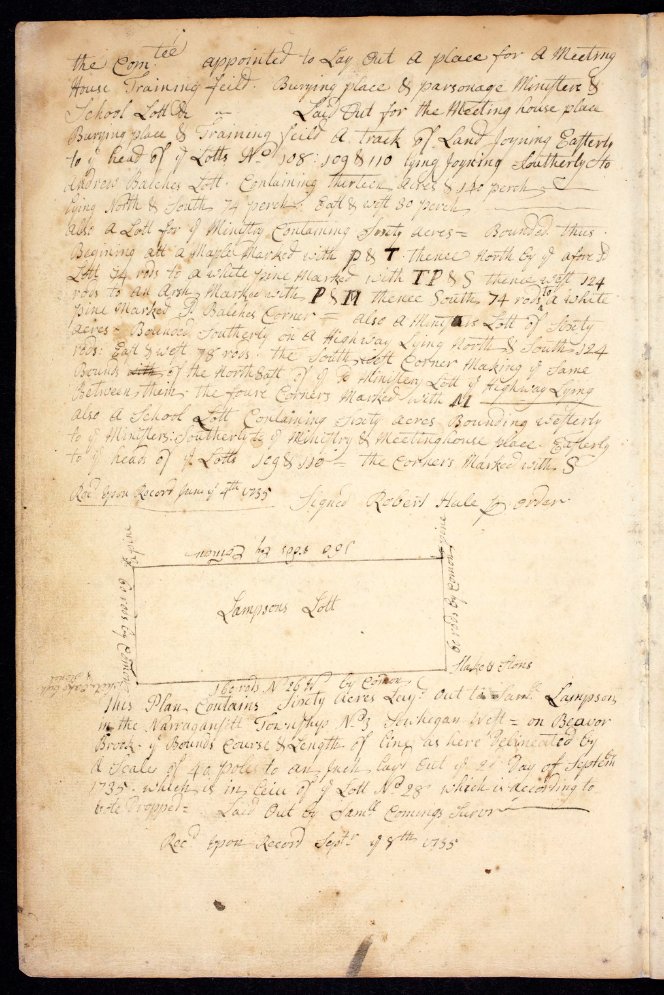 the Comtee appointed to Lay out a place for a Meeting
House Training feild. Burying place & parsonage Ministers &
School Lott &c Laid out for the Meeting house place
Burying place & Training feild a track of Land Joyning Easterly
to ye head of ye Lotts No 108: 109 & 110 lying Joyning Southerly to
Andrew Balches Lott. Containing thirteen acres & 140 perch
lying North & South 74 perch. East & west 30 perch
also a Lott for ye Ministry Containing Sixty acres = Bounded thus.
Begining att a Maple Marked with P & T. thence North by ye aforesd
Lott 74 rods to a white pine Marked with TP & S thence west 124
rods to an Ash Marked with P & M thence South 74 rods to a White
pine Marked P. Balches Corner = also a Ministers Lott of Sixty
acres = Bounded Southerly on a Highway Lying North & South 124
rods: East & west 78 rods: the South Corner Making ye Same
Bounds with of the North East of ye sd Ministery Lott ye Highway Lying
Between them: the foure Corners Marked with M
also a School Lott Containing Sixty acres Bounding westerly
to ye Ministers: Southerly to ye Ministry & Meetinghouse place Easterly
to ye heads of ye Lotts 109 & 110 = the Corners Marked with S
Recd upon Record June ye 4th 1735 Signed Robert Hale p order
160 rods by Comon
pine
60 rods by Comon
pine
60 rods by Comon
Lampsons Lott
Stake & Stons
160 rods No 26 W. by Comon
This Plan Contains Sixty acres Layd out to Samll Lampson
in the Narragansitt Township No 3 Souhigan West = on Beavor
Brook. ye Bounds Course & Length of line as here Delineated by
a Scale of 40 poles to an Inch layd out ye Day of Septembr
1735 which is in Lieu of ye Lott No 28 which is according to
vote Dropped = Laid Out by Samll Comings Survr
Recd upon Record Septr ye 8th 1735